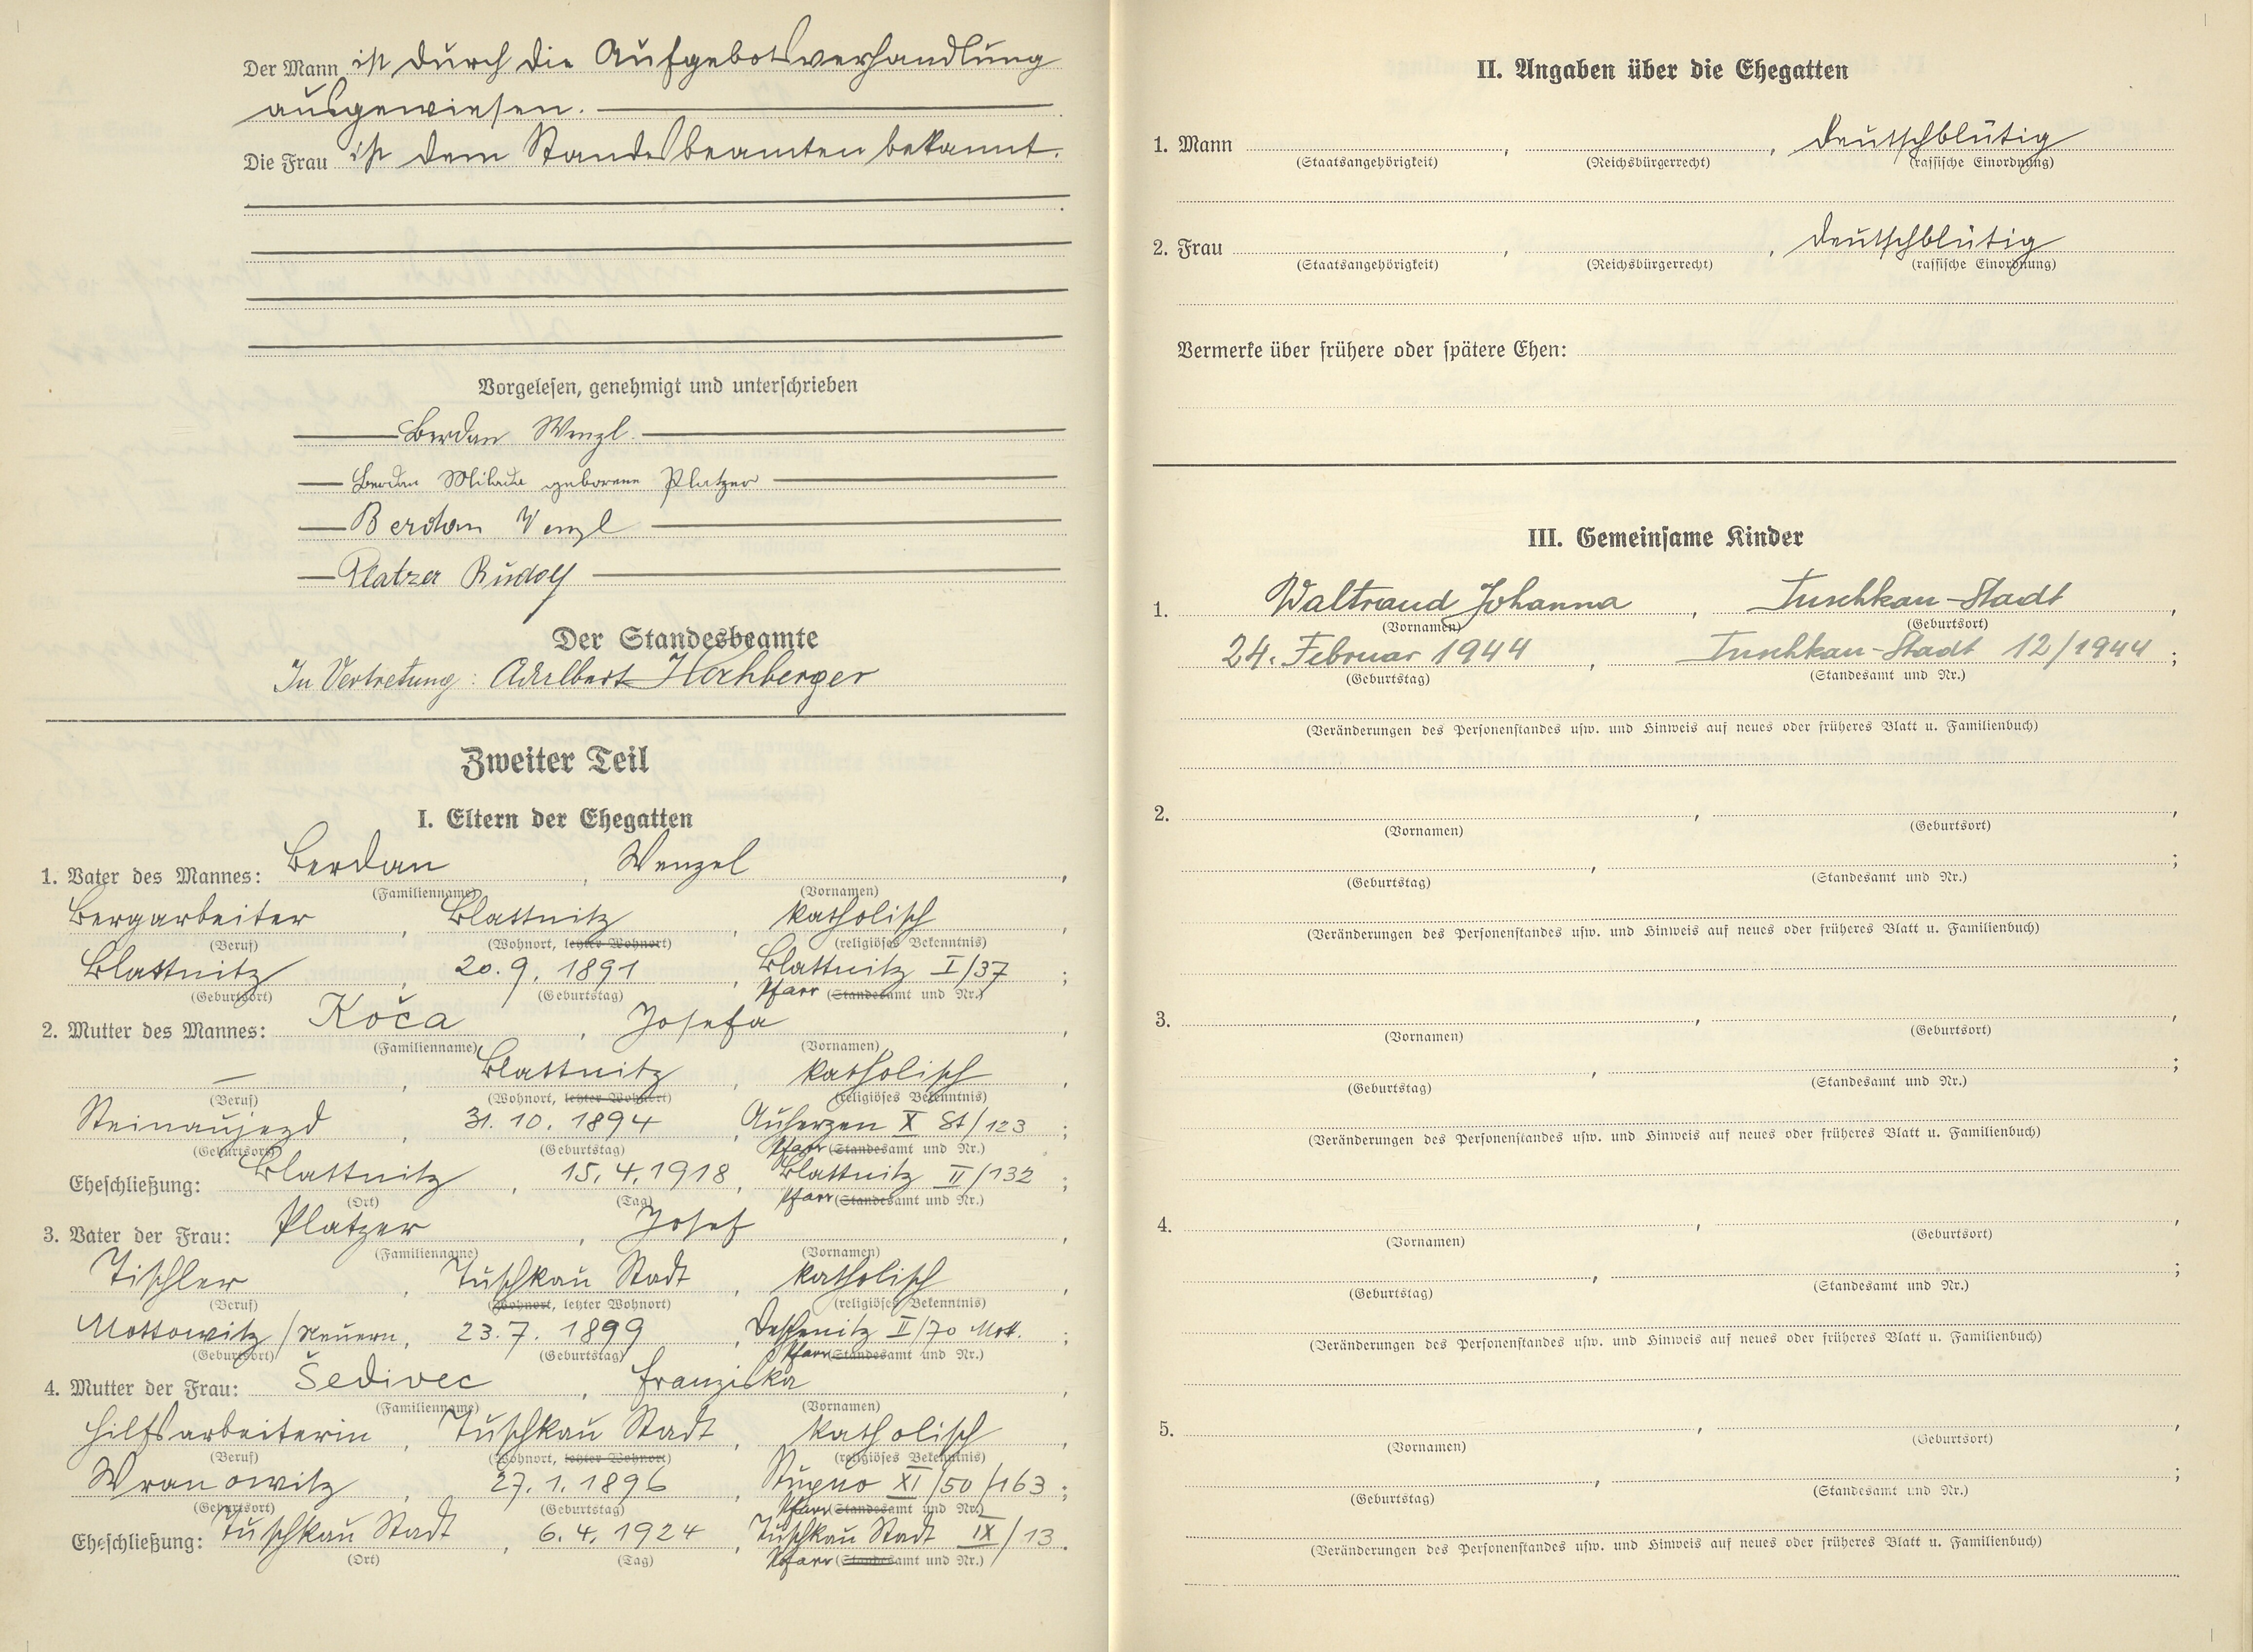 Der Mann ist durch die Aufgebotsverhandlung
ausgewiesen.
Die Frau ist dem Standesbeamten bekannt.
Vorgelesen, genehmigt und unterschrieben
Berdan Wenzl.
Berdan Milada geborene Platzer
Berdan Venzl
Platzer Rudolf
Der Standesbeamte
In Vertretung: Adelbert Hochberger
Zweiter Teil
I. Eltern der Ehegatten
1. Vater des Mannes: Berdan, Wenzel,
(Familienname) (Vornamen)
Bergarbeiter, Blattnitz, katholisch,
(Beruf) (Wohnort, letzter Wohnort) (religiöses Bekenntnis)
Blattnitz, 20.9.1891, Blattnitz I/37;
(Geburtsort) (Geburtstag) Pfarr (Standesamt und Nr.)
2. Mutter des Mannes: Koča, Josefa,
(Familienname) (Vornamen)
—, Blattnitz, katholisch,
(Beruf) (Wohnort, letzter Wohnort) (religiöses Bekenntnis)
Steinaujezd, 31.10.1894, Auherzen X St/123;
(Geburtsort) (Geburtstag) Pfarr (Standesamt und Nr.)
Eheschließung: Blattnitz, 15.4.1918, Blattnitz II/132;
(Ort) (Tag) Pfarr (Standesamt und Nr.)
3. Vater der Frau: Platzer, Josef,
(Familienname) (Vornamen)
Tischler, Tuschkau Stadt, katholisch,
(Beruf) (Wohnort, letzter Wohnort) (religiöses Bekenntnis)
Mottowitz/Neuern, 23.7.1899, Deschenitz II/70 Mott.;
(Geburtsort) (Geburtstag) Pfarr (Standesamt und Nr.)
4. Mutter der Frau: Šedivec, Franziska,
(Familienname) (Vornamen)
Hilfsarbeiterin, Tuschkau Stadt, katholisch,
(Beruf) (Wohnort, letzter Wohnort) (religiöses Bekenntnis)
Wranowitz, 27.1.1896, Stupno XI/50/163;
(Geburtsort) (Geburtstag) Pfarr (Standesamt und Nr.)
Eheschließung: Tuschkau Stadt, 6.4.1924, Tuschkau Stadt IX/13.
(Ort) (Tag) Pfarr (Standesamt und Nr.)
II. Angaben über die Ehegatten
1. Mann , , deutschblütig
(Staatsangehörigkeit) (Reichsbürgerrecht) (rassische Einordnung)
2. Frau , , deutschblütig
(Staatsangehörigkeit) (Reichsbürgerrecht) (rassische Einordnung)
Vermerke über frühere oder spätere Ehen:
III. Gemeinsame Kinder
1. Waltraud Johanna, Tuschkau-Stadt,
(Vornamen) (Geburtsort)
24. Februar 1944, Tuschkau-Stadt 12/1944;
(Geburtstag) (Standesamt und Nr.)
(Veränderungen des Personenstandes usw. und Hinweis auf neues oder früheres Blatt u. Familienbuch)
2. , ,
(Vornamen) (Geburtsort)
, ;
(Geburtstag) (Standesamt und Nr.)
(Veränderungen des Personenstandes usw. und Hinweis auf neues oder früheres Blatt u. Familienbuch)
3. , ,
(Vornamen) (Geburtsort)
, ;
(Geburtstag) (Standesamt und Nr.)
(Veränderungen des Personenstandes usw. und Hinweis auf neues oder früheres Blatt u. Familienbuch)
4. , ,
(Vornamen) (Geburtsort)
, ;
(Geburtstag) (Standesamt und Nr.)
(Veränderungen des Personenstandes usw. und Hinweis auf neues oder früheres Blatt u. Familienbuch)
5. , ,
(Vornamen) (Geburtsort)
, ;
(Geburtstag) (Standesamt und Nr.)
(Veränderungen des Personenstandes usw. und Hinweis auf neues oder früheres Blatt u. Familienbuch)